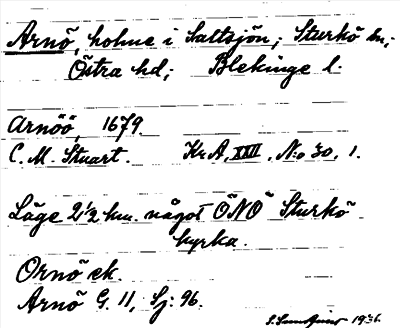 Arnö, holme i Saltsjön; Sturkö sn;
Östra hd; Blekinge l.
Arnöö, 1679.
C. M. Stuart. Kr A, XXII, N:o 30, 1.
Läge 2½ km. något ÖNÖ Sturkö
kyrka.
Ornö ek.
Arnö G. 11, Sj: 96.
1936.